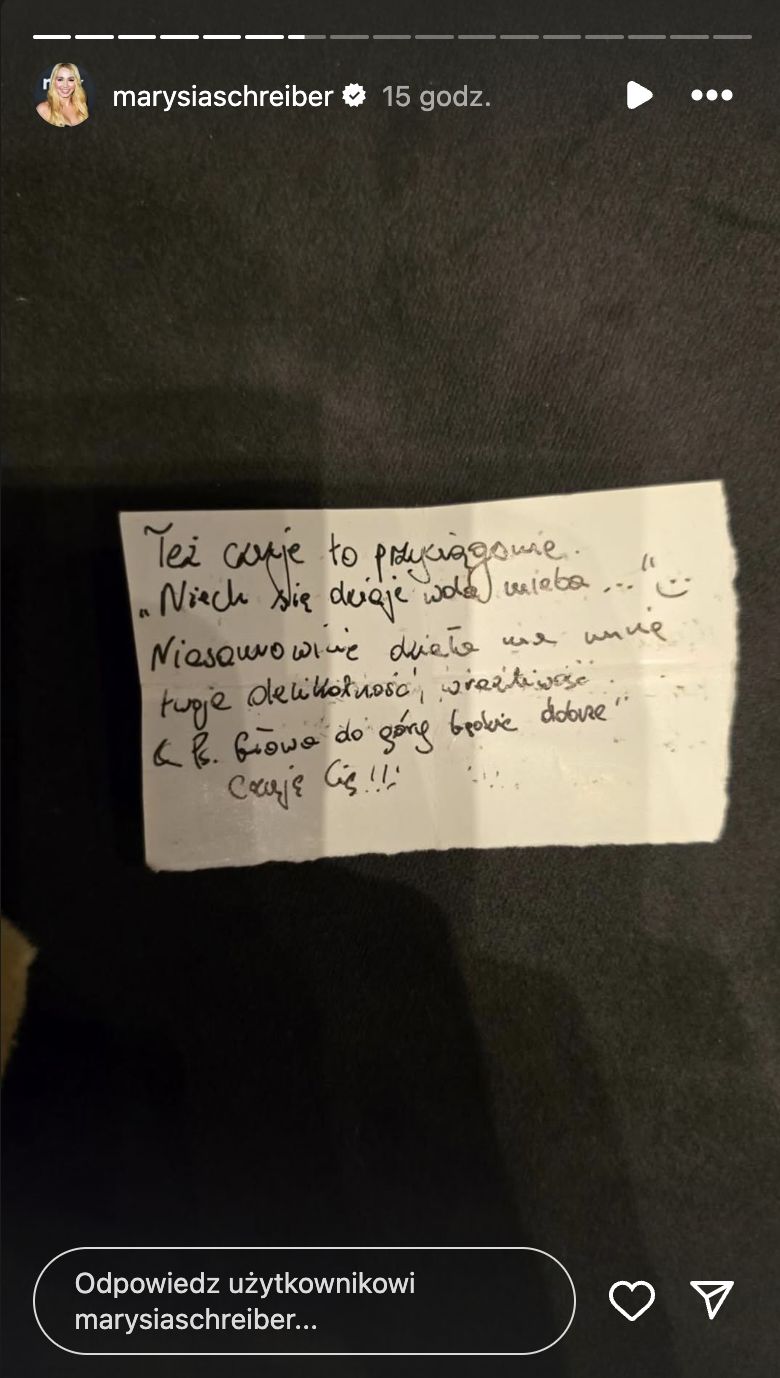 marysiaschreiber 15 godz.
Też czuje to przyciąganie.
„Niech się dzieje wola nieba ..." :)
Niesamowicie działa na mnie
twoje delikatność, wrażliwość.
Ps. Głowa do góry będzie dobrze"
Czuję Cię!!!
Odpowiedz użytkownikowi
marysiaschreiber...